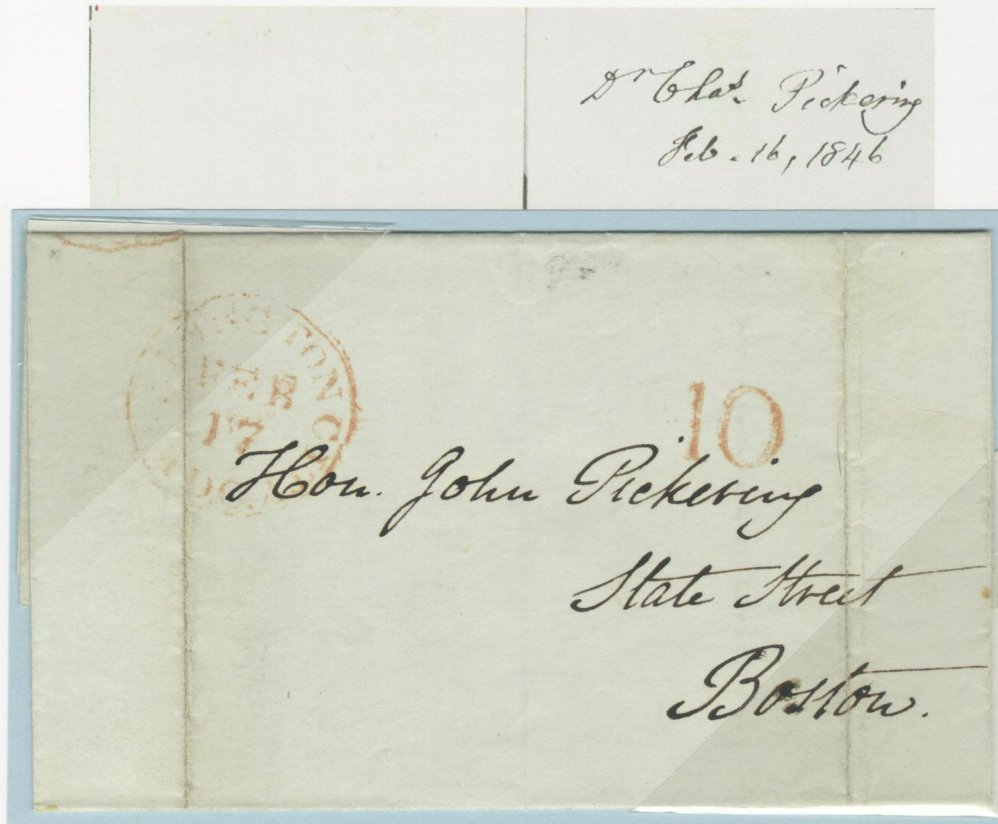 Dr Chas. Pickering
Feb. 16, 1846
FEB
17
10
Hon. John Pickering
State Street
Boston.